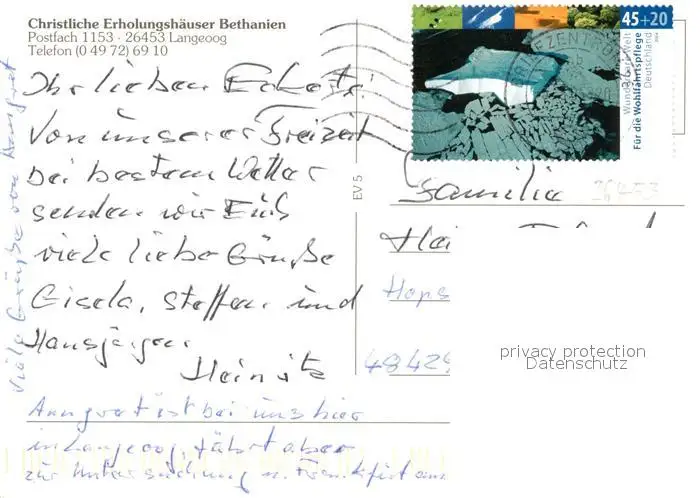 Christliche Erholungshäuser Bethanien
Postfach 1153 · 26453 Langeoog
Telefon (0 49 72) 69 10
45+20
Deutschland
Für die Wohlfahrtspflege
EV 5
Ihr lieben
Von unserer Freizeit
bei bestem Wetter
senden wir Euch
viele liebe Grüße
Gisela, Steffen und
Hansjürgen
Heinitz
Anngret ist bei uns hier
in Langeoog, fährt aber
zur Untersuchung n. Frankfurt
viele Grüße von Anngret
Familie
26453
Hei
Hops
48429
privacy protection
Datenschutz